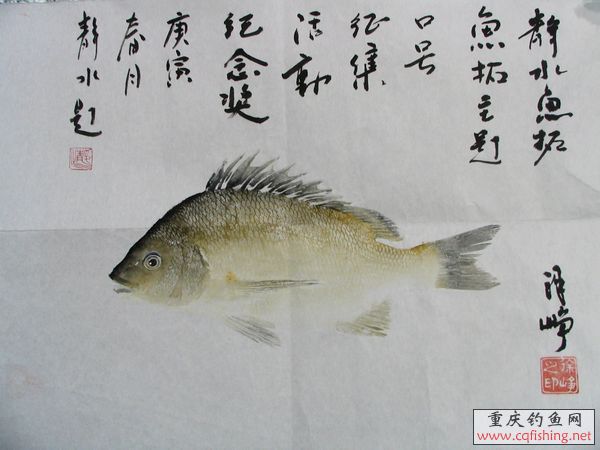 静水魚拓
魚拓主题
口号
征集
活動
纪念奖
庚寅
春月
静水题
徐峥
徐峥之印
重庆钓鱼网
www.cqfishing.net